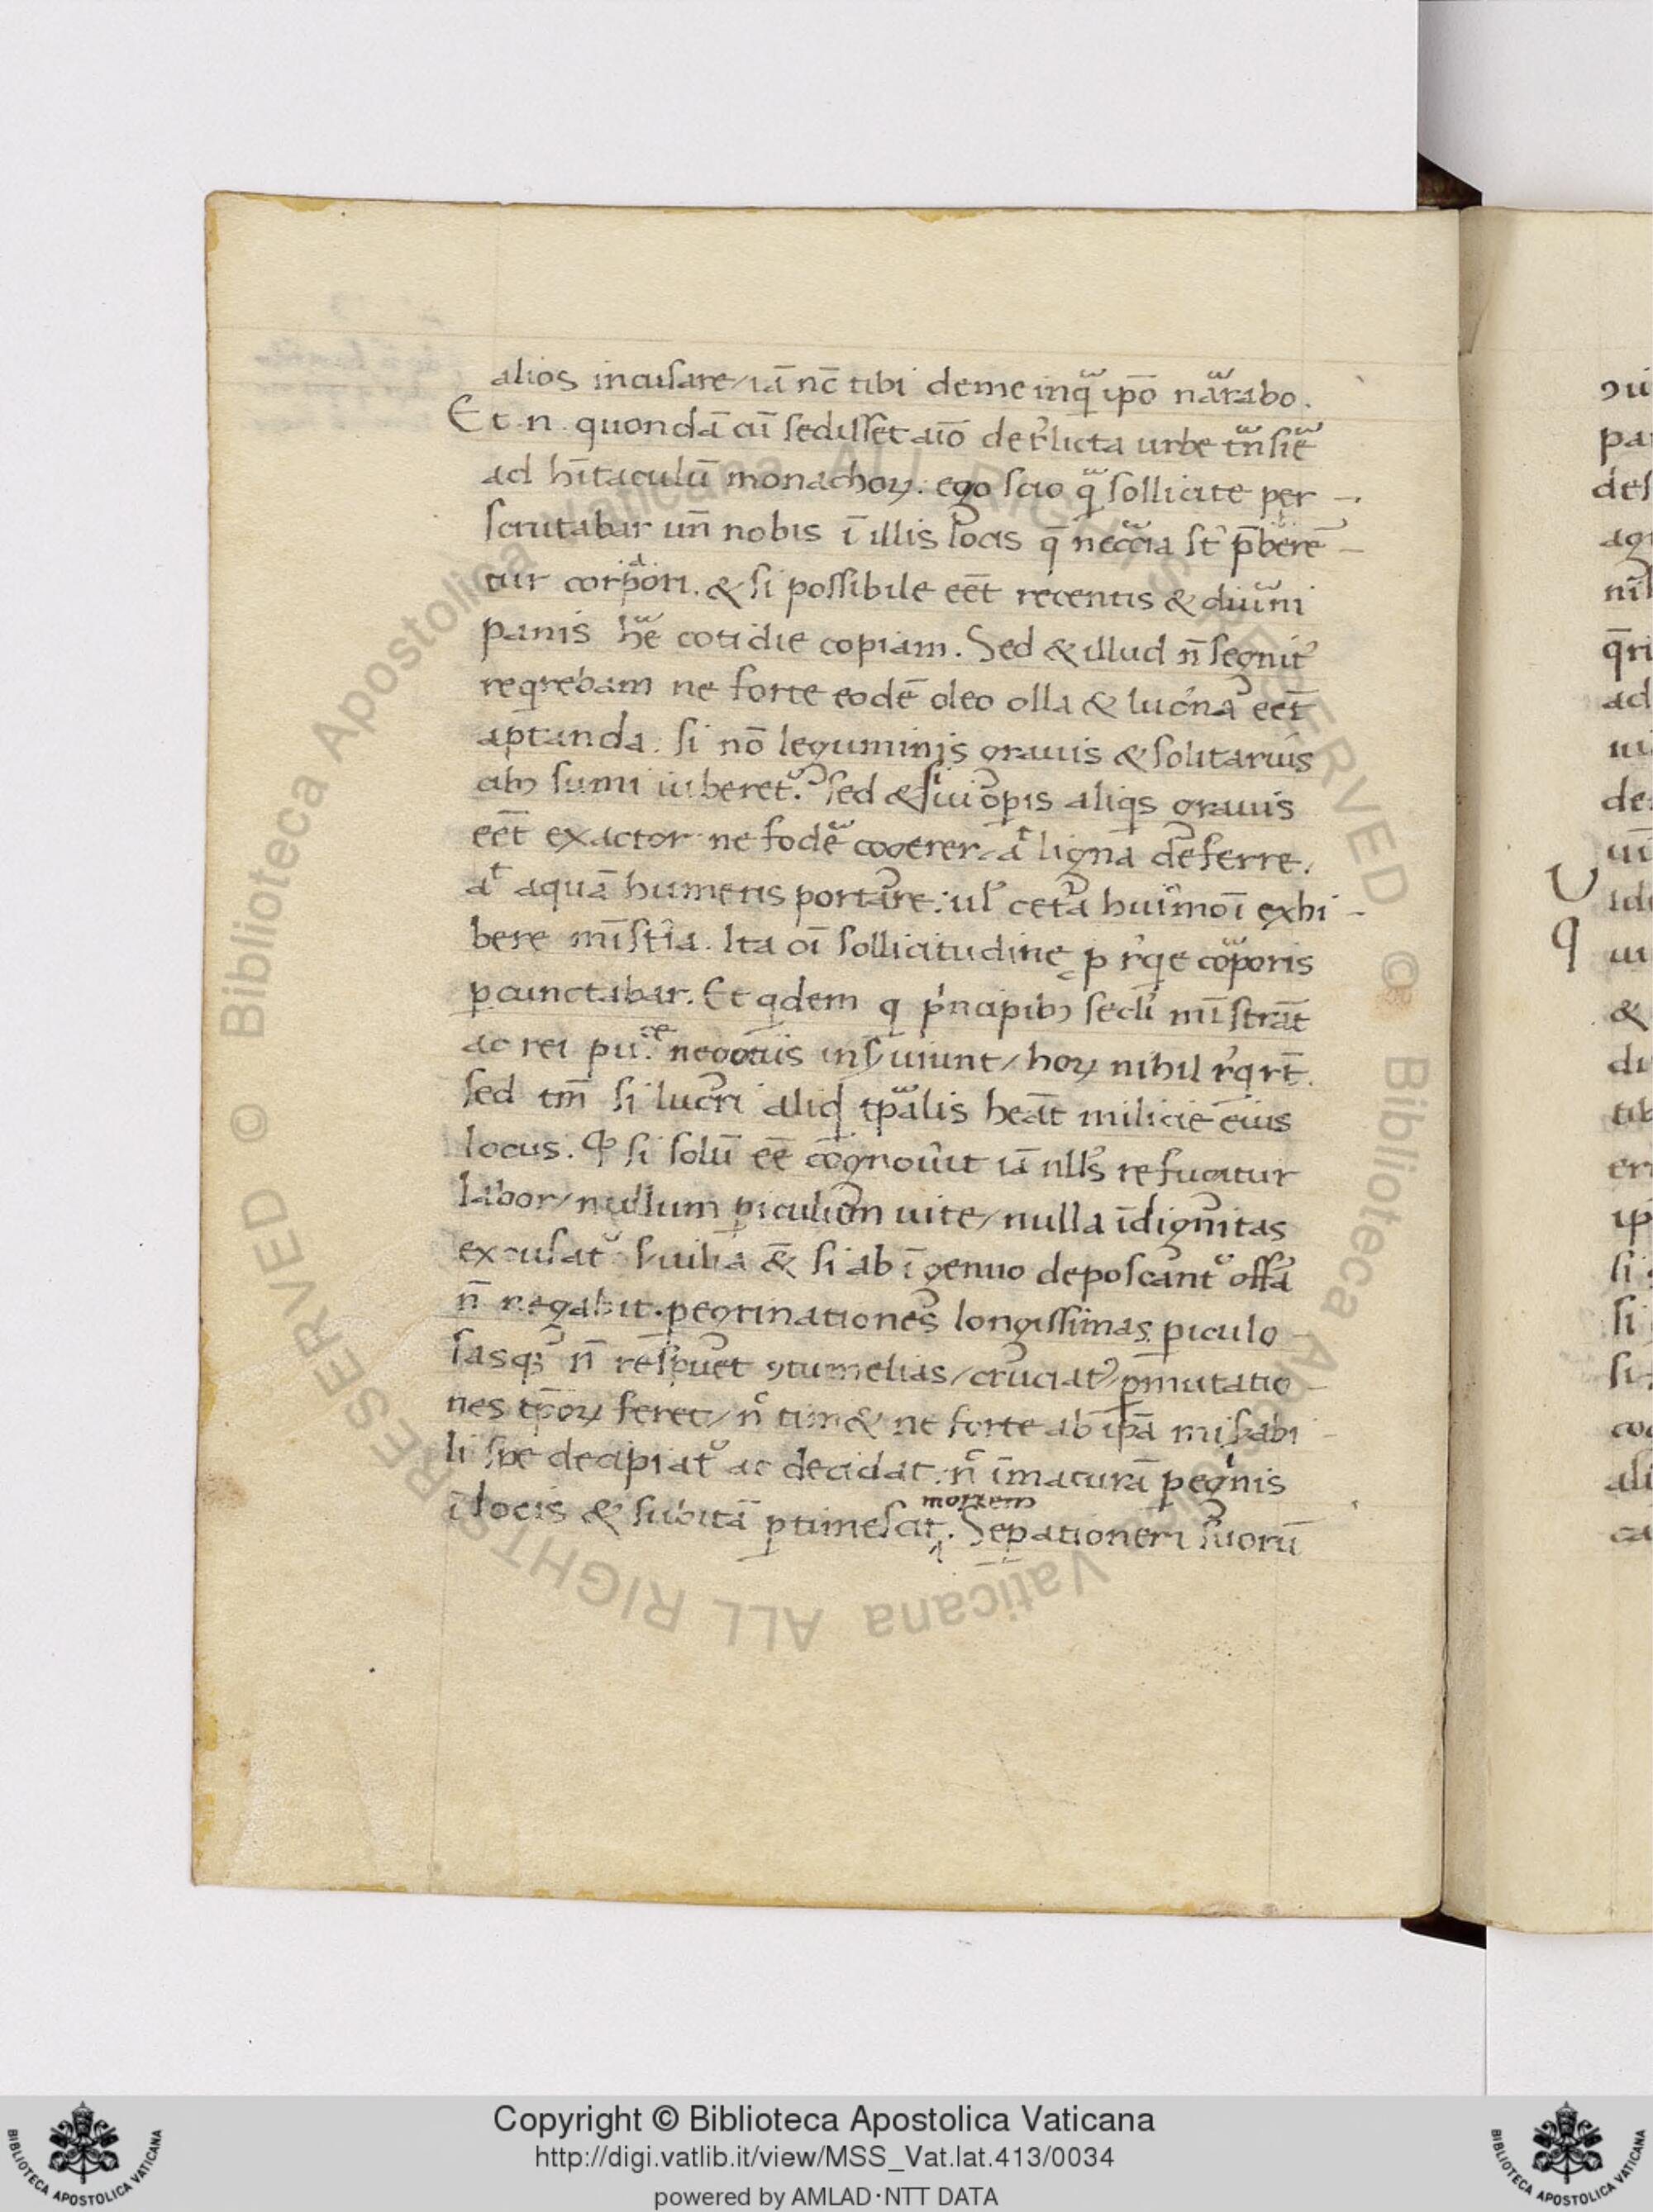 alios incusare/ iā nc̄ tibi de me inqᷓ ip̄o naᷓrabo.
Et .n. quondā cū sedisset aīo der̕licta urbe tᷓnsiᷓe
ad hītaculū monachoꝝ. ego scio qᷓ sollicite per-
scrutabar un̄ nobis ī illis locis q̄ neccᷓia st̄ p̄bᷓere-
tur corpori. & si possibile eēt recentis & diuᷓni
panis hᷓe cotidie copiam. Sed & illud n̄ segnit̕
reqrebam ne forte eodē oleo olla & luc̕na eēt
aptanda. si nō leguminis grauis & solitarius
sumi iuberet᷑. Sed & s̕ui op̕is aliqs grauis
eēt exactor ne fodᷓe cogerer/ aͭ ligna deferre/
aͭ aquā humeris portare: ul̕ cet̕a hui̕moī exhi-
bere mīst̕ia. Ita oī sollicitudine ꝓ r̕qe coᷓporis
ꝑcunctabar. Et qdem q p̕ncipibꝫ secl̕i mīstrāt
ac rei pu.ᵃᵉ negotiis ins̕uiunt/ hoꝝ nihil r̕qrt̄.
sed tm̄ si lucri aliqd tpᷓalis heāt milicie eius
locus. Qd si solū eē cogno̕uit iā nll̕s refugitur
labor/ nullum piculum uite/ nulla īdignitas
excusat᷑ s̕uilia & si ab īgenuo deposcant᷑ offa̕
n̄ negabit. pegrinationes longissimas piculo-
sasqꝫ n̄ respuet ꝯtumelias/ cruciat᷒/ pmutatio-
nes tpoꝝ feret/ nͨ tim& ne forte ab ip̄a mis̕abi-
li spe decipiat᷑ ac decidat. nͨ īmaturā peg̕nis
ī locis & subitā ptimescit mortem. Sepationem suorū
Copyright © Biblioteca Apostolica Vaticana
http://digi.vatlib.it/view/MSS_Vat.lat.413/0034
powered by AMLAD·NTT DATA